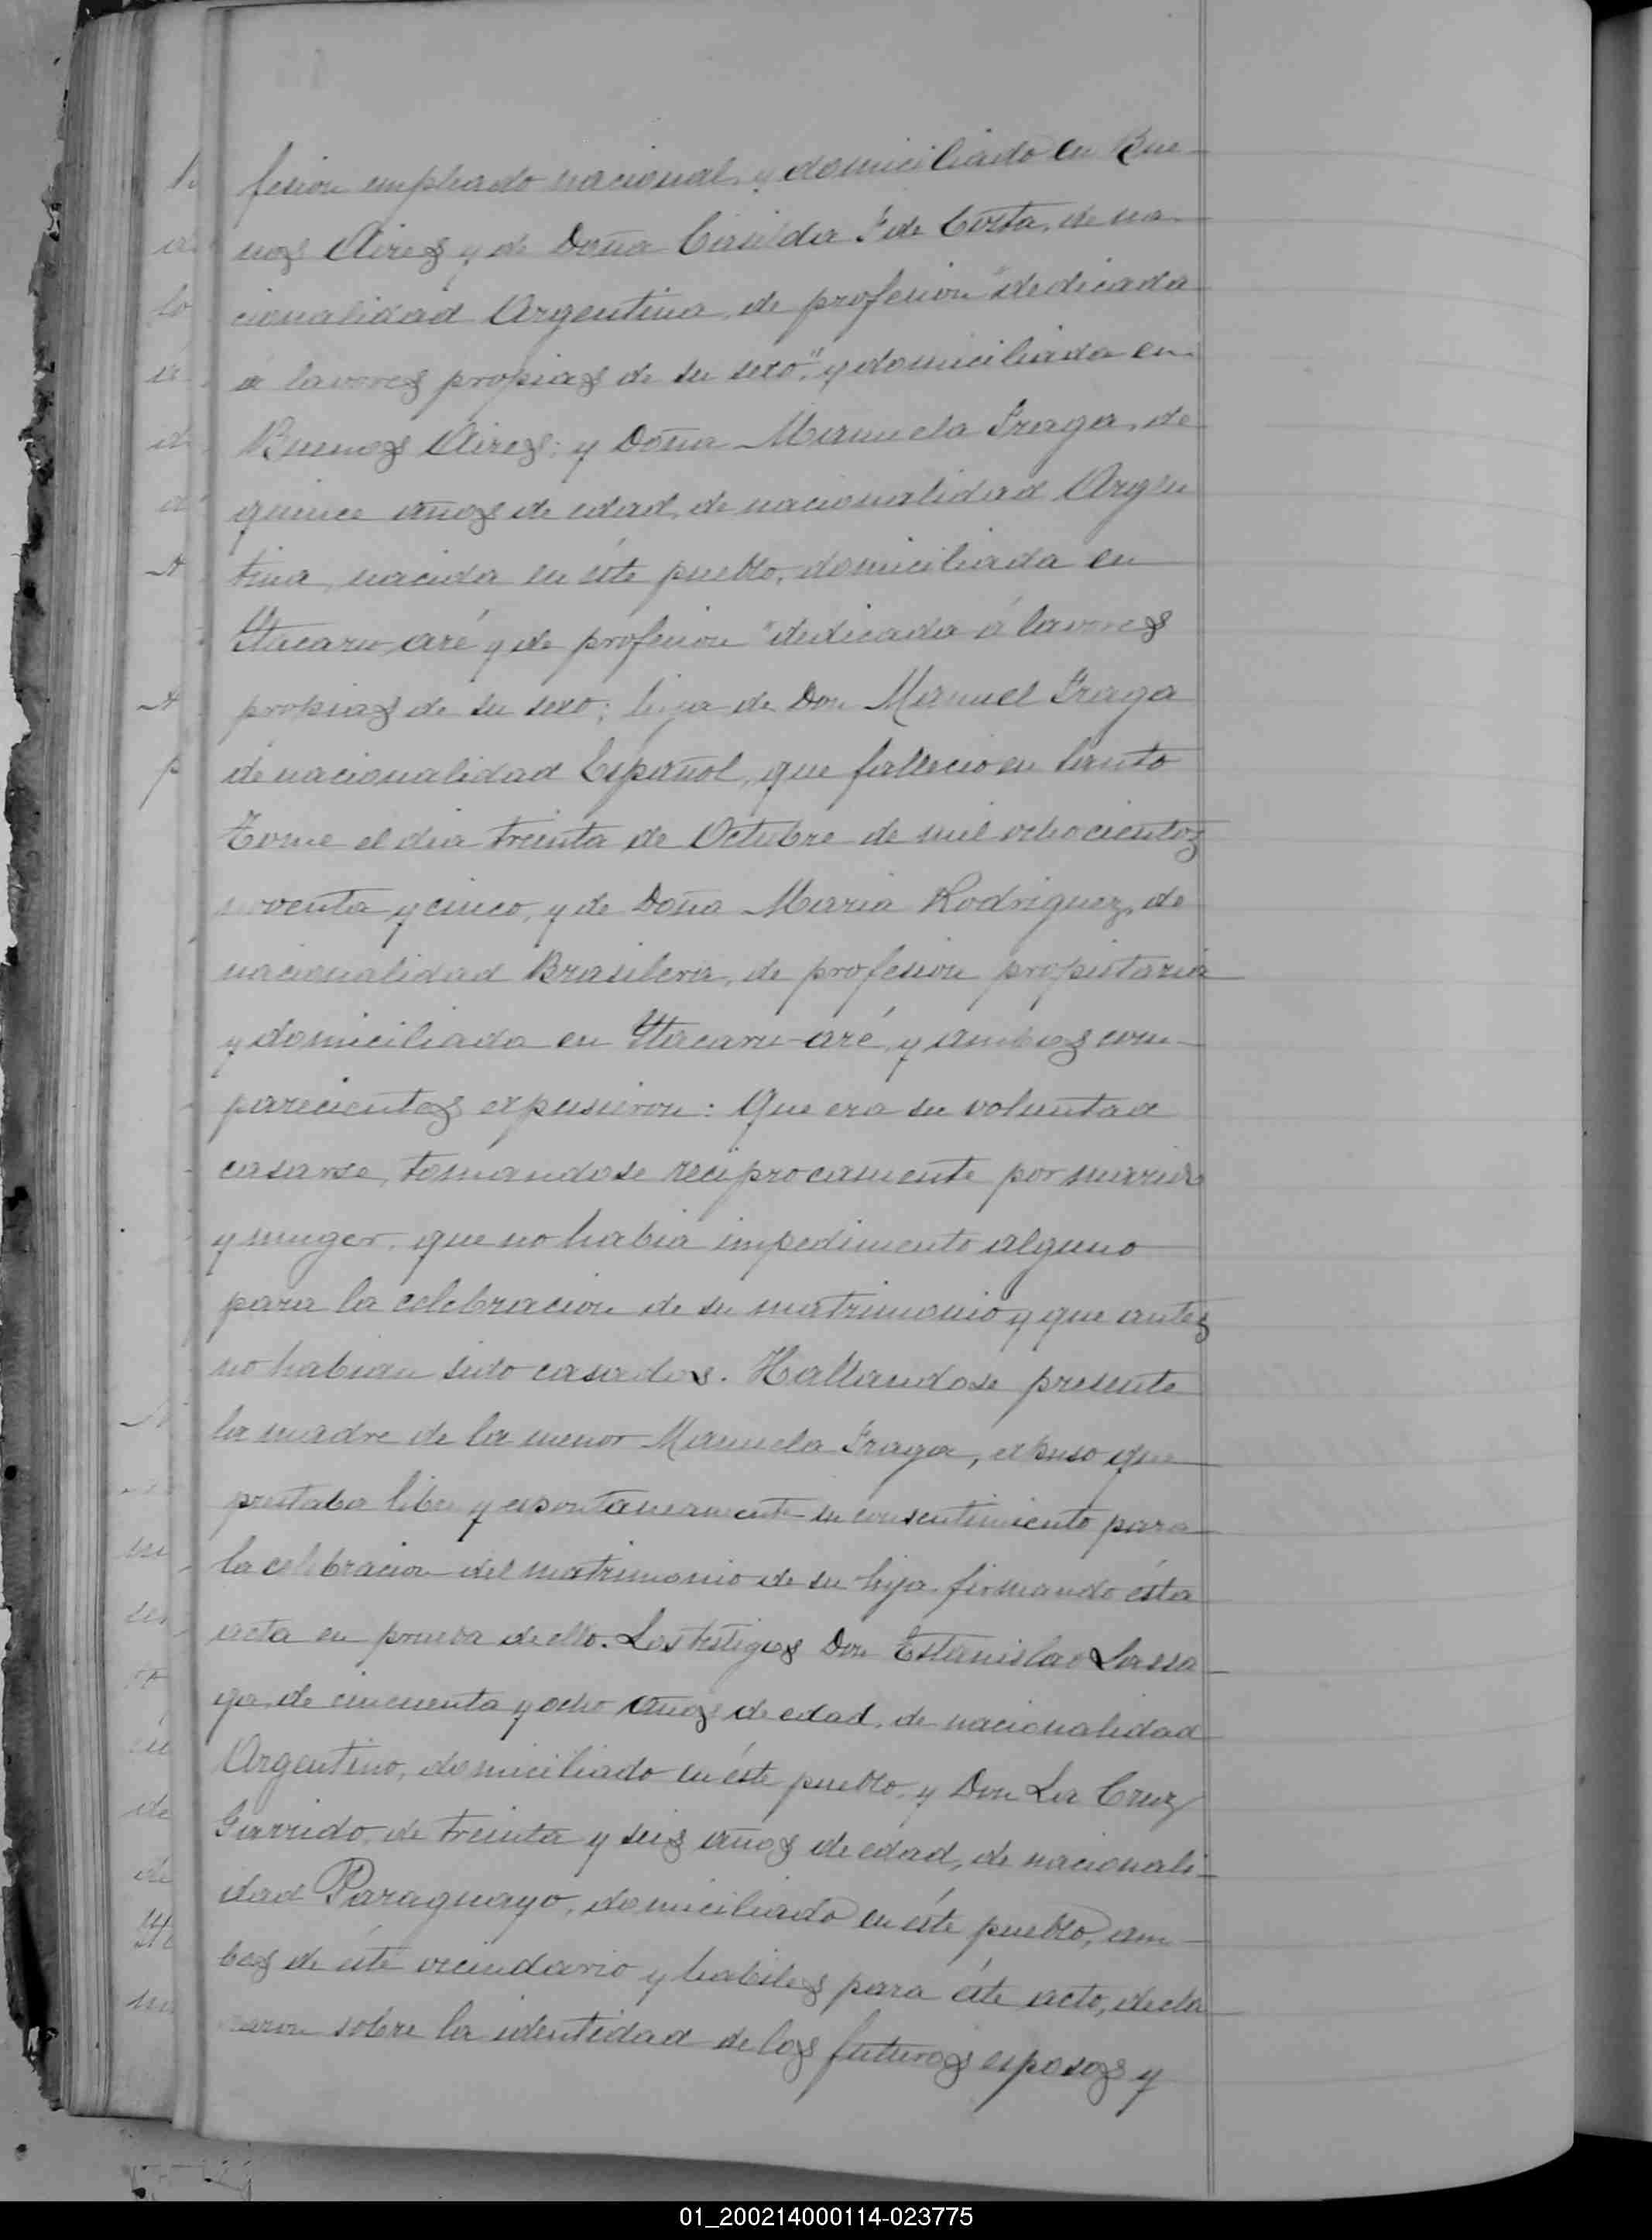 fesion empleado nacional, y domiciliado en Bue-
nos Aires y de Doña Casilda F de Costa, de na-
cionalidad Argentina, de profesion "dedicada
á lavores propias de su sexo", y domiciliada en
Buenos Aires; y Doña Manuela Fraga, de
quince años de edad, de nacionalidad Argen
tina, nacida en éste pueblo, domiciliada en
Itacaru-aré y de profesion "dedicada á lavores
propias de su sexo; hija de Don Manuel Fraga
de nacionalidad Español, que fallecio en Santo
Tome el dia treinta de Octubre de mil ochocientos
noventa y cinco, y de Doña Maria Rodriguez, de
nacionalidad Brasilera, de profesion propietaria
y domiciliada en Itacaru-aré, y ambos com-
parecientes expusieron: Que era su voluntad
casarse, tomandose reciprocamente por marido
y muger, que no habia impedimento alguno
para la celebracion de su matrimonio y que antes
no habian sido casados. Hallandose presente
la madre de la menor Manuela Fraga, expuso que
prestaba libre y espontaneamente su consentimiento para
la celebracion del matrimonio de su hija firmando ésta
acta en prueba de ello. Los testigos Don Estanislao Lassa
ga, de cincuenta y ocho años de edad, de nacionalidad
Argentino, domiciliado en éste pueblo, y Don La Cruz
Garrido, de treinta y seis años de edad, de nacionali-
dad Paraguayo, domiciliado en éste pueblo, am-
bos de éste vecindario y habiles para éste acto, decla
raron sobre la identidad de los futuros esposos y
01_200214000114-023775